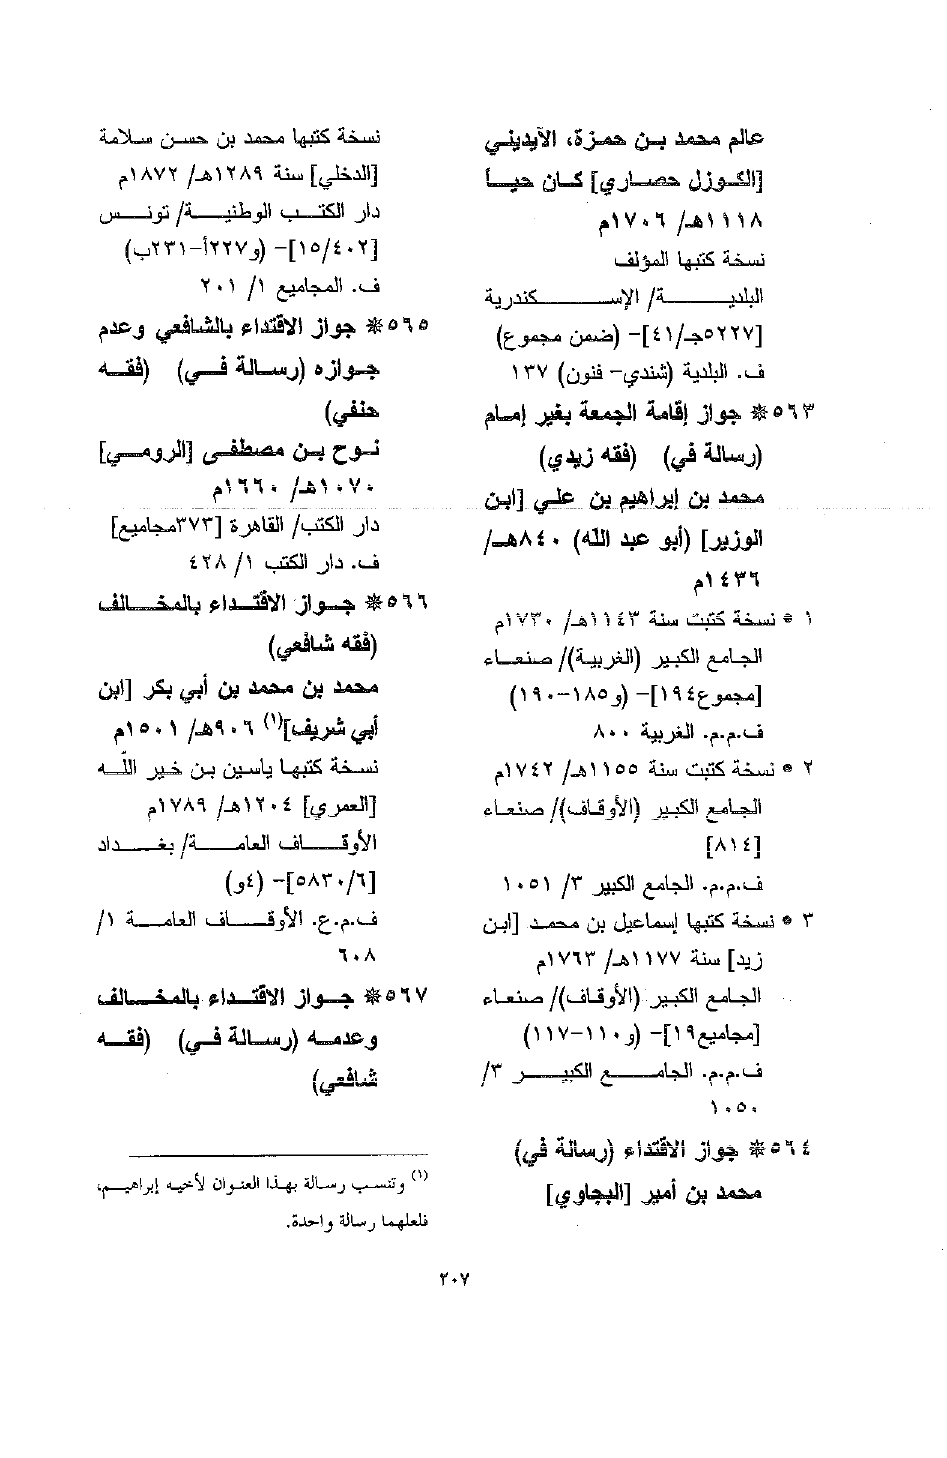 عالم محمد بن حمزة، الآيديني
[الكوزل حصاري] كان حياً
١١١٨هـ/ ١٧٠٦م
نسخة كتبها المؤلف
البلدية/ الإسكندرية
[٥٢٢٧جـ/٤١]- (ضمن مجموع)
ف. البلدية (شندي- فنون) ١٣٧
٥٦٣* جواز إقامة الجمعة بغير إمام
(رسالة في) (فقه زيدي)
محمد بن إبراهيم بن علي [ابن
الوزير] (أبو عبد الله) ٨٤٠هـ/
١٤٣٦م
١ * نسخة كتبت سنة ١١٤٣هـ/ ١٧٣٠م
الجامع الكبير (الغربية)/ صنعاء
[مجموع١٩٤]- (و١٨٥-١٩٠)
ف.م.م. الغربية ٨٠٠
٢ * نسخة كتبت سنة ١١٥٥هـ/ ١٧٤٢م
الجامع الكبير (الأوقاف)/ صنعاء
[٨١٤]
ف.م.م. الجامع الكبير ٣/ ١٠٥١
٣ * نسخة كتبها إسماعيل بن محمد [ابن
زيد] سنة ١١٧٧هـ/ ١٧٦٣م
الجامع الكبير (الأوقاف)/ صنعاء
[مجاميع١٩]- (و١١٠-١١٧)
ف.م.م. الجامع الكبير ٣/
١٠٥٠
٥٦٤* جواز الاقتداء (رسالة في)
محمد بن أمير [البجاوي]
نسخة كتبها محمد بن حسن سلامة
[الدخلي] سنة ١٢٨٩هـ/ ١٨٧٢م
دار الكتب الوطنية/ تونس
[١٥/٤٠٢]- (و٢٢٧أ-٢٣١ب)
ف. المجاميع ١/ ٢٠١
٥٦٥* جواز الاقتداء بالشافعي وعدم
جوازه (رسالة في) (فقه
حنفي)
نوح بن مصطفى [الرومي]
١٠٧٠هـ/ ١٦٦٠م
دار الكتب/ القاهرة [٣٧٣مجاميع]
ف. دار الكتب ١/ ٤٢٨
٥٦٦* جواز الاقتداء بالمخالف
(فقه شافعي)
محمد بن محمد بن أبي بكر [ابن
أبي شريف](١) ٩٠٦هـ/ ١٥٠١م
نسخة كتبها ياسين بن خير الله
[العمري] ١٢٠٤هـ/ ١٧٨٩م
الأوقاف العامة/ بغداد
[٥٨٣٠/٦]- (٤و)
ف.م.ع. الأوقاف العامة ١/
٦٠٨
٥٦٧* جواز الاقتداء بالمخالف
وعدمه (رسالة في) (فقه
شافعي)
(١) وتنسب رسالة بهذا العنوان لأخيه إبراهيم،
فلعلهما رسالة واحدة.
٢٠٧